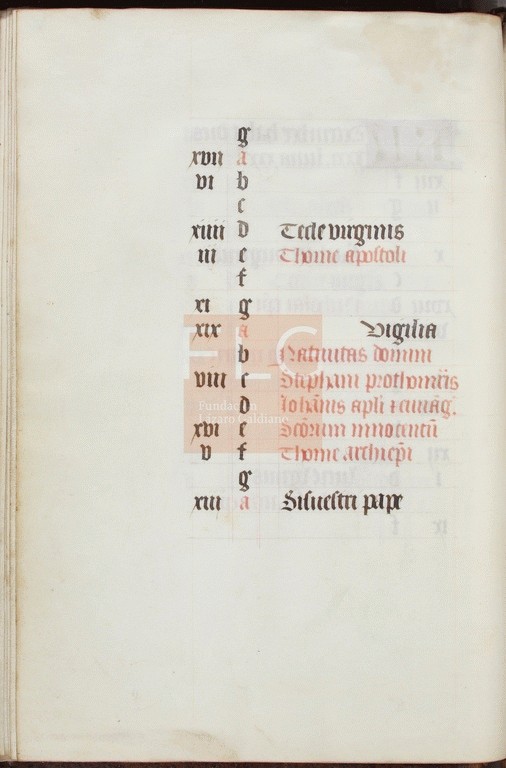 g
xvii a
vi b
c
xiiii d Tecle virginis
iii e Thome apostoli
f
xi g
xix a Vigilia
b Nativitas domini
viii c Stephani prothomris
d Iohānis apli
xvi e Scōrum innocentū
v f Thome archiepi
g
xiii a Silvestri pape
FLG
Fundación
Lázaro Galdiano